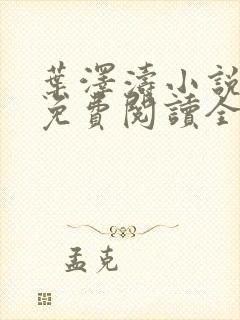 葉澤濤小說
免費閱讀全
孟克